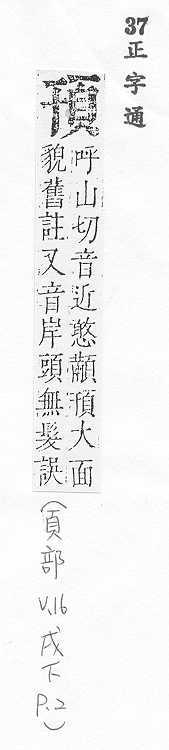 37正字通
頇
呼山切音近憨顢頇大面
貌舊註又音岸頭無髮誤
(頁部 V.16 戌下 P.2)